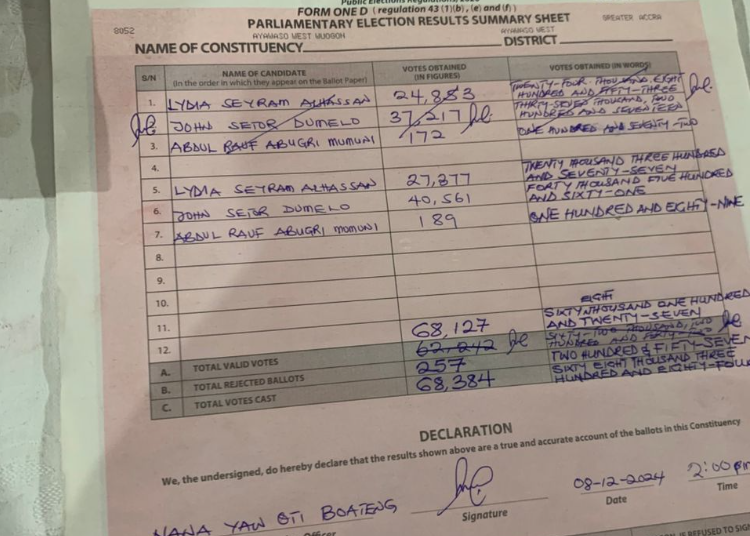 Public Elections Regulations, 2020
FORM ONE D (regulation 43(1)(b), (e) and (f))
PARLIAMENTARY ELECTION RESULTS SUMMARY SHEET
8052 AYAWASO WEST WUOGON AYAWASO WEST GREATER ACCRA
NAME OF CONSTITUENCY DISTRICT
S/N NAME OF CANDIDATE VOTES OBTAINED VOTES OBTAINED (IN WORDS)
(In the order in which they appear on the Ballot Paper) (IN FIGURES)
1. LYDIA SEYRAM ALHASSAN 24,853 TWENTY-FOUR THOUSAND, EIGHT
HUNDRED AND FIFTY-THREE
JOHN SETOR DUMELO 37,217 THIRTY-SEVEN THOUSAND, TWO
HUNDRED AND SEVENTEEN
3. ABDUL RAUF ABUGRI MUMUNI 172 ONE HUNDRED AND SEVENTY-TWO
4.
5. LYDIA SEYRAM ALHASSAN 27,377 TWENTY THOUSAND THREE HUNDRED
AND SEVENTY-SEVEN
6. JOHN SETOR DUMELO 40,561 FORTY THOUSAND FIVE HUNDRED
AND SIXTY-ONE
7. ABDUL RAUF ABUGRI MOMUNI 189 ONE HUNDRED AND EIGHTY-NINE
8.
9.
10.
11. 68,127 SIXTY EIGHT THOUSAND ONE HUNDRED
AND TWENTY-SEVEN
12.
A. TOTAL VALID VOTES 62,242 SIXTY-TWO THOUSAND, TWO
HUNDRED AND FORTY-TWO
B. TOTAL REJECTED BALLOTS 257 TWO HUNDRED & FIFTY-SEVEN
C. TOTAL VOTES CAST 68,384 SIXTY EIGHT THOUSAND THREE
HUNDRED AND EIGHTY-FOUR
DECLARATION
We, the undersigned, do hereby declare that the results shown above are a true and accurate account of the ballots in this Constituency
NANA YAW OTI BOATENG 08-12-2024 2:00 pm
Officer Signature Date Time
IS REFUSED TO SIGN